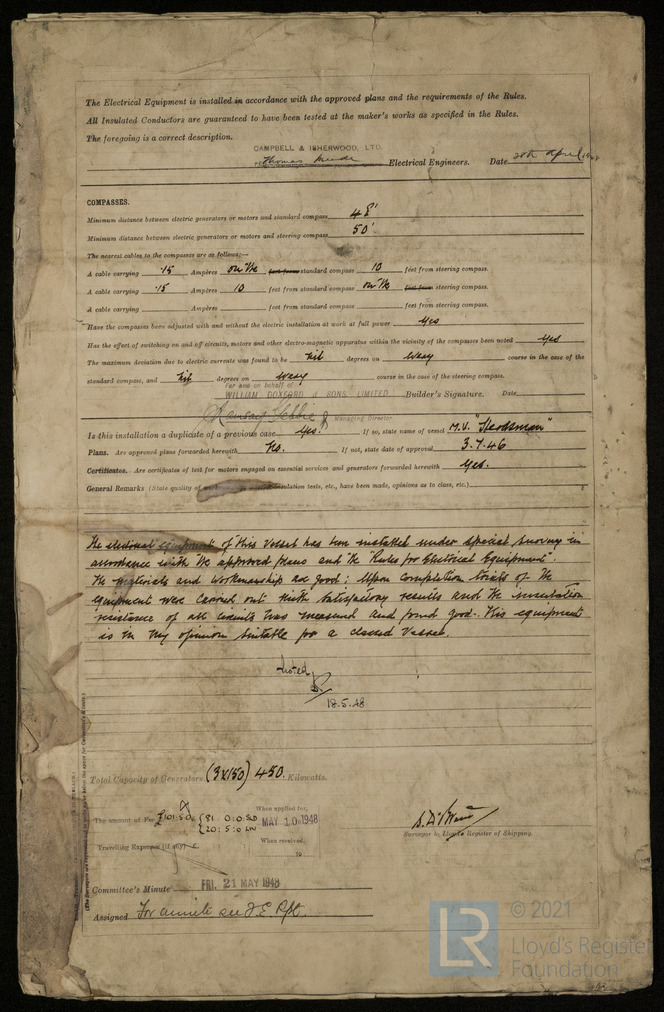 The Electrical Equipment is installed in accordance with the approved plans and the requirements of the Rules.
All Insulated Conductors are guaranteed to have been tested at the maker's works as specified in the Rules.
The foregoing is a correct description.
CAMPBELL & ISHERWOOD, LTD.
Thomas Electrical Engineers. Date 28th April 1948
COMPASSES.
Minimum distance between electric generators or motors and standard compass 48'
Minimum distance between electric generators or motors and steering compass 50'
The nearest cables to the compasses are as follows:—
A cable carrying .15 Ampères on the feet from standard compass 10 feet from steering compass.
A cable carrying .15 Ampères 10 feet from standard compass on the feet from steering compass.
A cable carrying Ampères feet from standard compass feet from steering compass.
Have the compasses been adjusted with and without the electric installation at work at full power Yes
Has the effect of switching on and off circuits, motors and other electro-magnetic apparatus within the vicinity of the compasses been noted Yes
The maximum deviation due to electric currents was found to be Nil degrees on Every course in the case of the
standard compass, and Nil degrees on Every course in the case of the steering compass.
For and on behalf of
WILLIAM DOXFORD & SONS, LIMITED. Builder's Signature. Date
Ramsay Gebbie Managing Director
Is this installation a duplicate of a previous case Yes. If so, state name of vessel M.V. "Herdsman"
Plans. Are approved plans forwarded herewith No. If not, state date of approval 3.7.46
Certificates. Are certificates of test for motors engaged on essential services and generators forwarded herewith Yes.
General Remarks (State quality of insulation tests, etc., have been made, opinions as to class, etc.)
The electrical equipment of this Vessel has been installed under Special Survey in
accordance with the approved plans and the "Rules for Electrical Equipment".
The materials and workmanship are good: Upon completion trials of the
equipment were carried out with satisfactory results and the insulation
resistance of all circuits was measured and found good. This equipment
is in my opinion suitable for a classed Vessel.
Noted
18.5.48
Total Capacity of Generators (3x150) 450. Kilowatts.
The amount of Fee £101:5:0 {81:0:0
{20:5:0
When applied for,
MAY 10 1948
Travelling Expenses (if any) £
When received,
19
Surveyor to Lloyd's Register of Shipping.
Committee's Minute FRI. 21 MAY 1948
Assigned For minute see J.E. Rpt.
LR
© 2021
Lloyd's Register
Foundation